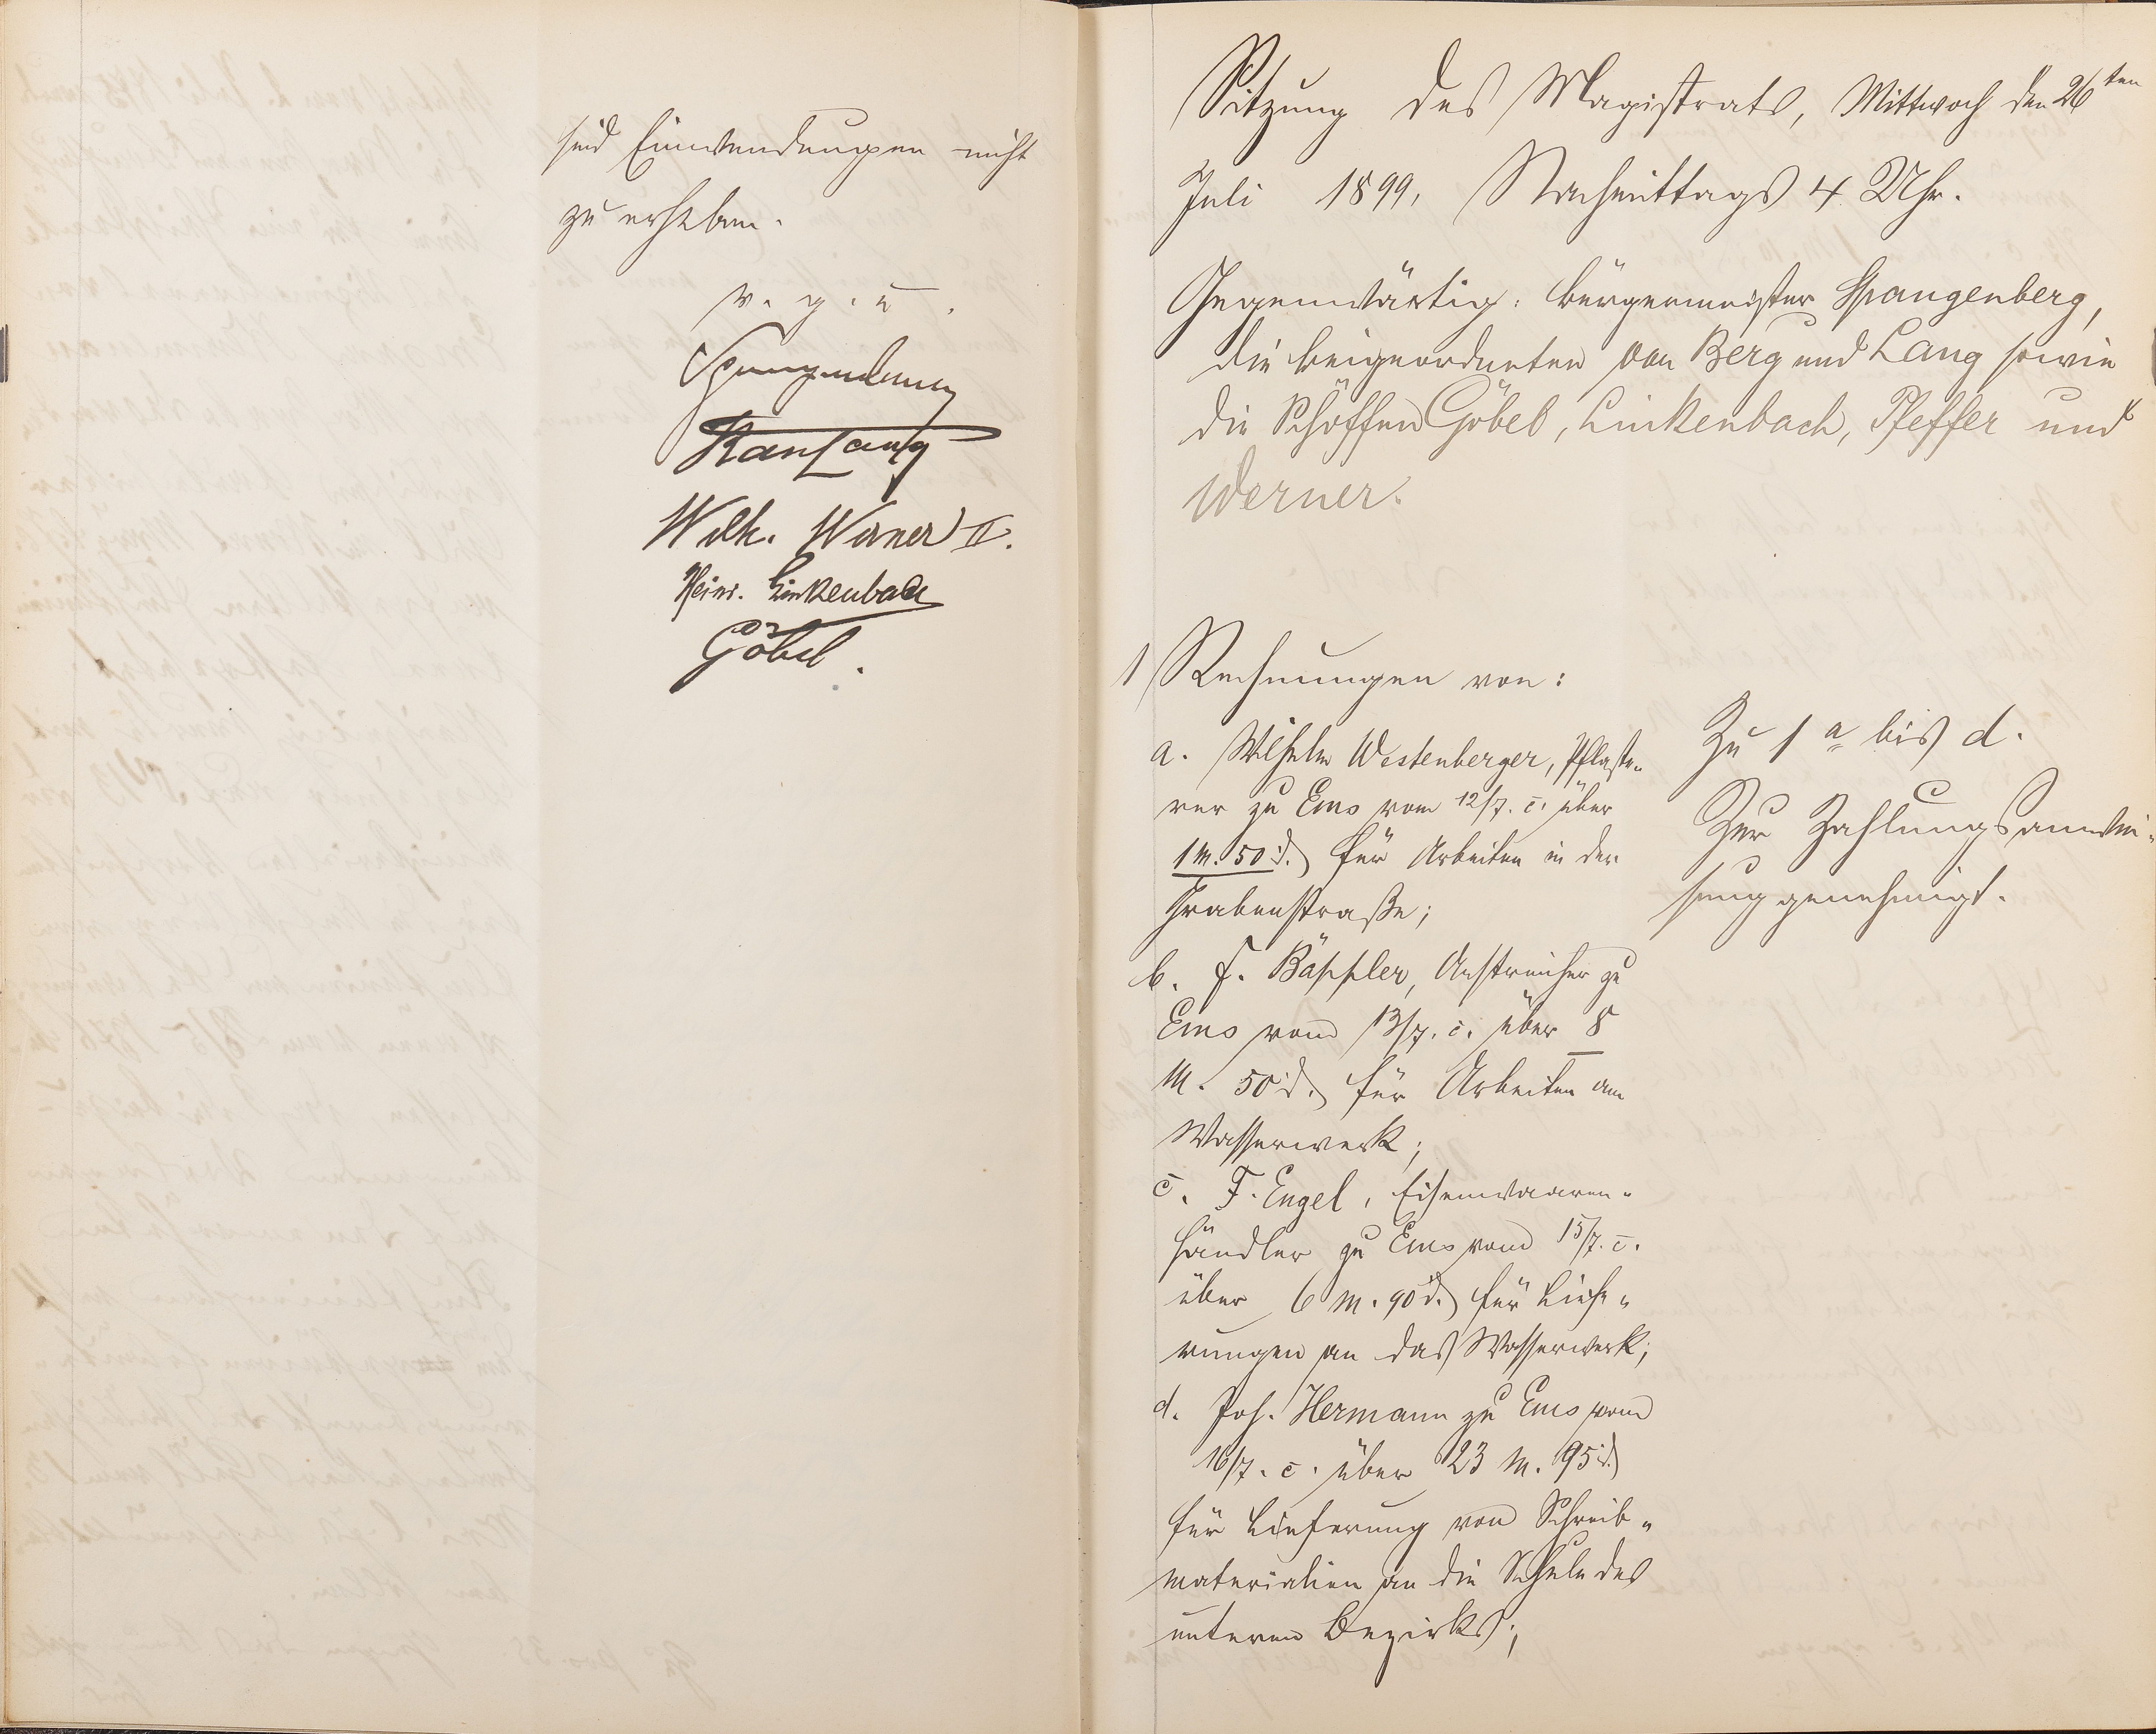 sind Einwendungen nicht
zu erheben.
v. g. u.
Spangenberg
Karl Lang
Wilh. Werner II.
Heinr. Linkenbach
Göbel.
Sitzung des Magistrats, Mittwoch den 26ten
Juli 1899, Nachmittags 4 Uhr.
Gegenwärtig: Bürgermeister Spangenberg,
die Beigeordneten von Berg und Lang sowie
die Schöffen Göbel, Linkenbach, Pfeffer und
Werner.
1 Rechnungen von:
a. Wilhelm Westenberger, Pflaste-
rer zu Ems vom 12/7. c. über
1 M. 50 d. für Arbeiten in der
Grabenstraße;
b. F. Bäppler, Anstreicher zu
Ems vom 13/7. c. über 8
M. 50 d. für Arbeiten am
Wasserwerk;
c. F. Engel, Eisenwaaren-
händler zu Ems vom 15/7. c.
über 6 M. 90 d. für Liefe-
rungen an das Wasserwerk;
d. Joh. Hermann zu Ems vom
16/7. c. über 23 M. 95 d.
für Lieferung von Schreib-
materialien an die Schule des
unteren Bezirks;
Zu 1 a bis d.
Zur Zahlungsanwei-
sung genehmigt.